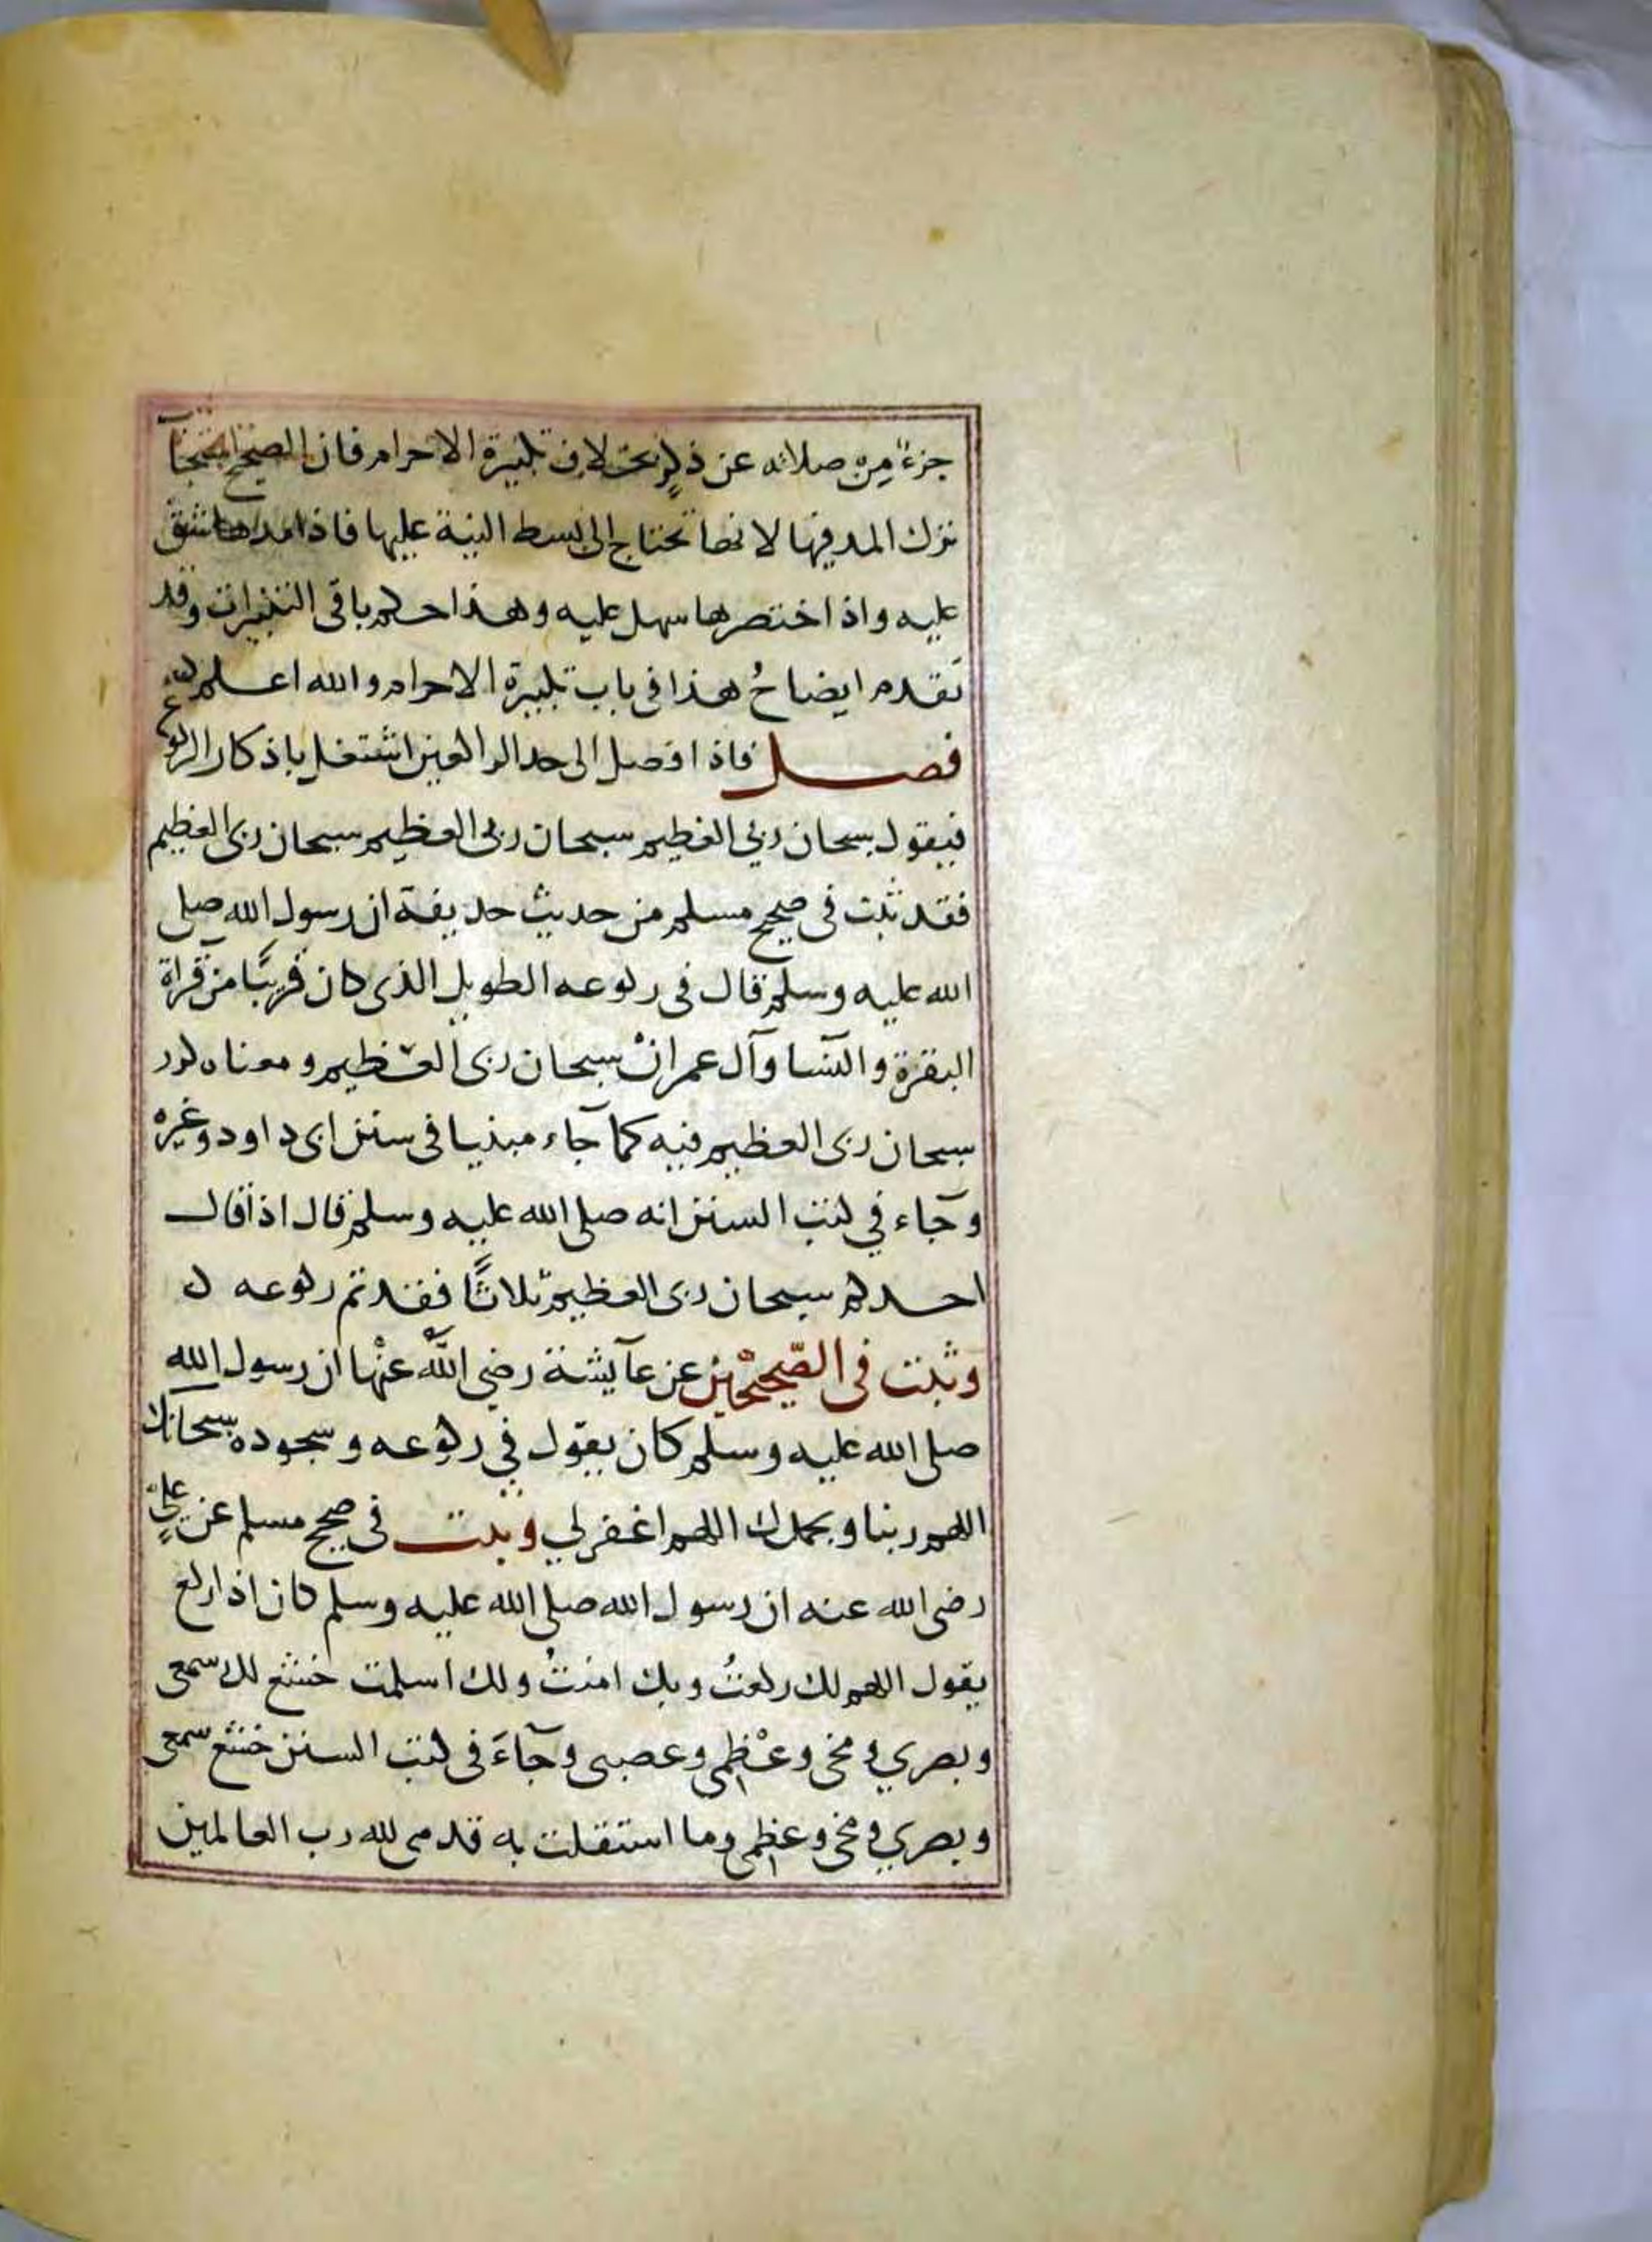 جزءٌ من صلاته عن ذكر بخلاف تكبيرة الاحرام فان الصحيح استحباب
ترك المد فيها لانها تحتاج الى بسط النية عليها فاذا مدها شق
عليه واذا اختصرها سهل عليه وهذا حكم باقى التكبيرات وقد
تقدم ايضاحُ هذا فى باب تكبيرة الاحرام والله اعلم
فصل فاذا وصل الى حد الراكعين اشتغل باذكار الركوع
فيقول سبحان ربي العظيم سبحان ربى العظيم سبحان ربى العظيم
فقد ثبت فى صحيح مسلم من حديث حذيفة ان رسول الله صلى
الله عليه وسلم قال فى ركوعه الطويل الذى كان قريبًا من قراة
البقرة والنسا وآل عمران سبحان ربى العظيم ومعناه كرر
سبحان ربى العظيم فيه كما جآء مبينا فى سنن ابى داود وغيره
وجآء في كتب السنن انه صلى الله عليه وسلم قال اذا قال
احدكم سبحان ربى العظيم ثلاثًا فقد تم ركوعه
وثبت فى الصّحيحْين عن عآيشة رضى اللّٰه عنْها ان رسول الله
صلى الله عليه وسلم كان يقول في ركوعه وسجوده سبحانك
اللهم ربنا وبحمدك اللهم اغفرلي وثبت فى صحيح مسلم عن علىٍّ
رضى الله عنه ان رسول الله صلى الله عليه وسلم كان اذا ركع
يقول اللهم لك ركعتُ وبك امنتُ ولك اسلمت خشع لك سمعى
وبصري ومخى وعظمى وعصبى وجآءَ فى كتب السنن خشع سمعى
وبصري ومخى وعظمى وما استقلت به قدمى لله رب العالمين